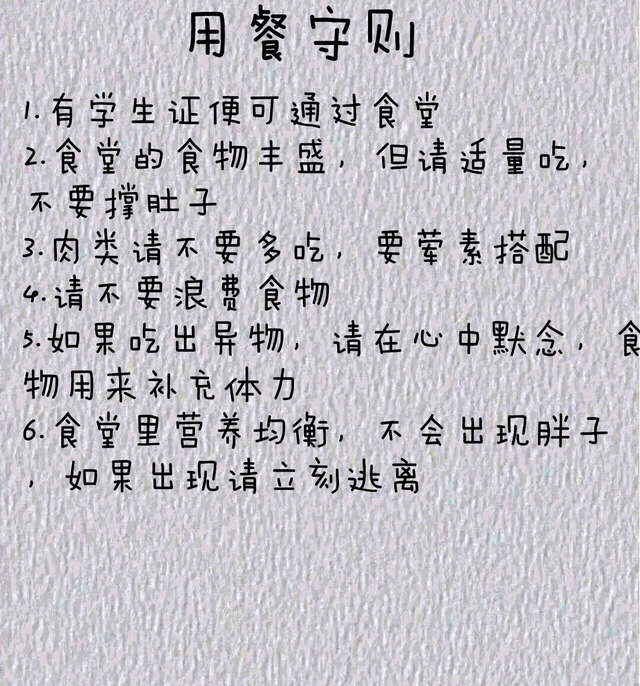 用餐守则
1.有学生证便可通过食堂
2.食堂的食物丰盛，但请适量吃，
不要撑肚子
3.肉类请不要多吃，要荤素搭配
4.请不要浪费食物
5.如果吃出异物，请在心中默念，食
物用来补充体力
6.食堂里营养均衡，不会出现胖子
，如果出现请立刻逃离